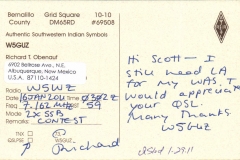 Bernalillo County
Grid Square DM65RD
10-10 #69508
Authentic Southwestern Indian Symbols
W5GUZ
Richard T. Obenauf
6902 Bellrose Ave., N.E.
Albuquerque, New Mexico
U.S.A. 87110-1424
RADIO W5WZ
16 JAN 2011 0302Z
7.162 MHz 59
MODE 2X SSB
Remarks CONTEST
Richard
Hi Scott— I
still need LA
for my WAS. I
would appreciate
your QSL.
Many Thanks
W5GUZ
QSLd 1-29-11